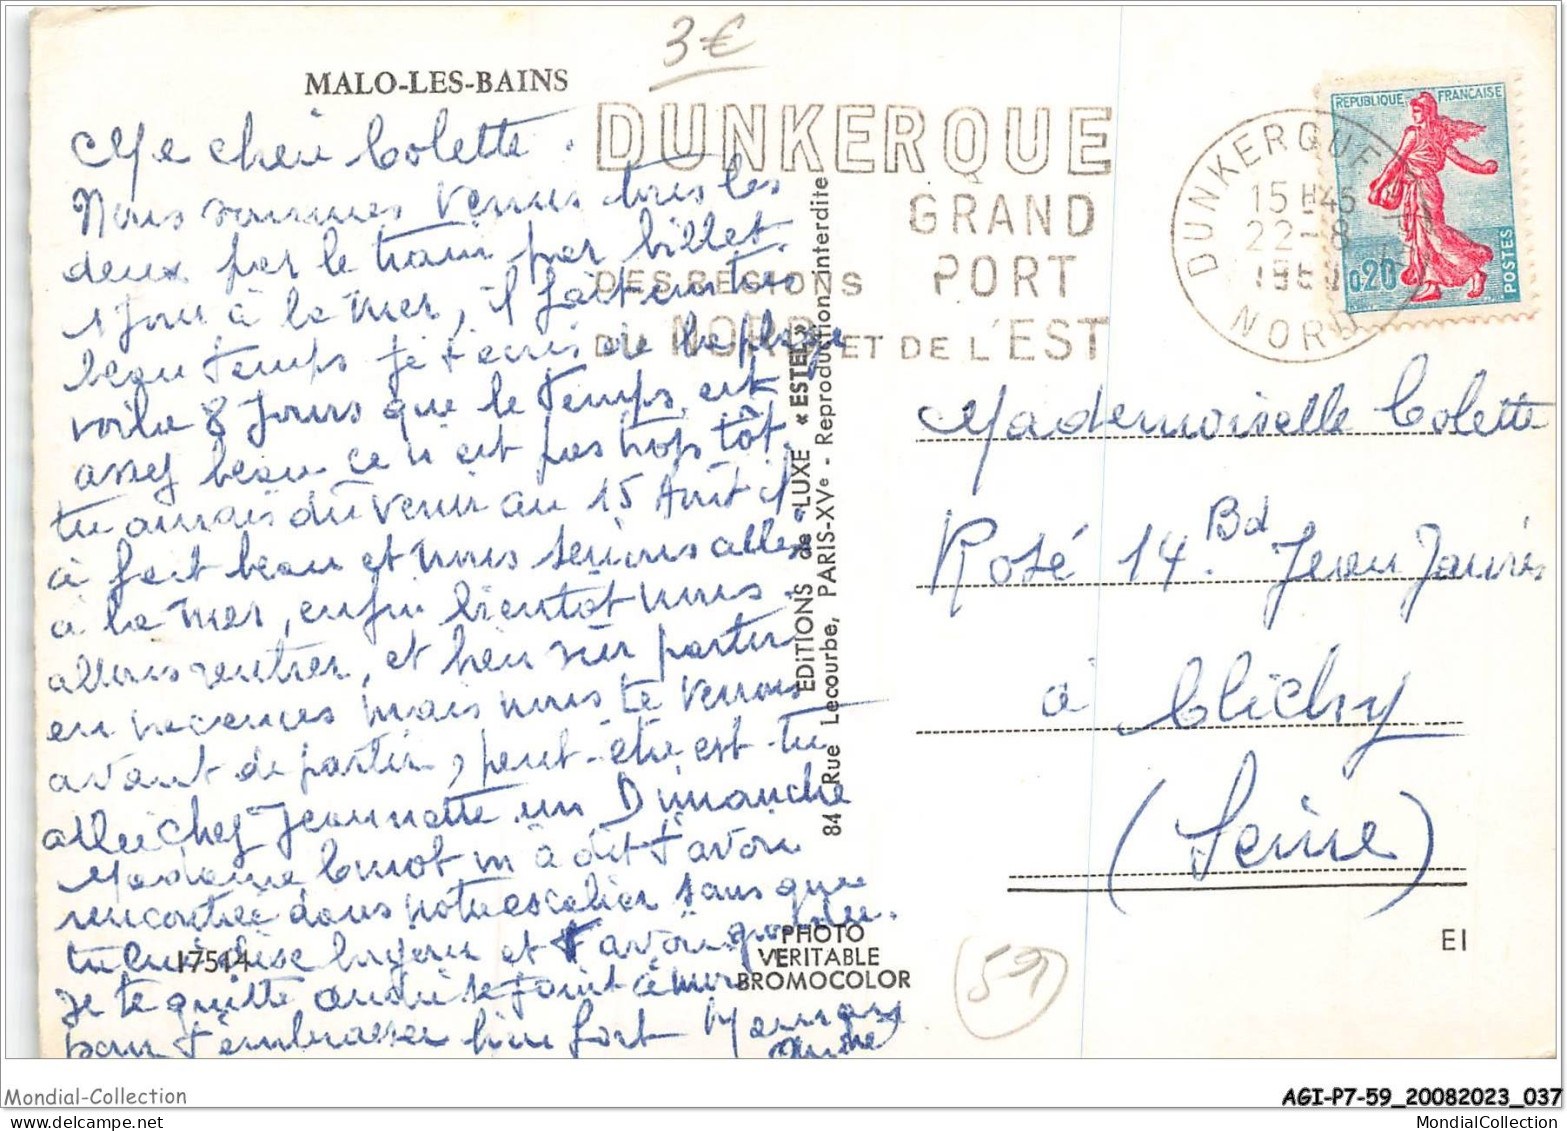 3€
MALO-LES-BAINS
DUNKERQUE
GRAND
DES REGIONS PORT
DU NORD ET DE L'EST
DUNKERQUE
15 H45
22-8
NORD
REPUBLIQUE FRANCAISE
0,20
POSTES
Ma cheri Colette.
Nous sommes venus tous les
deux par le train par billet
1 jour à la mer, il fait un très
beau temps je t ecris de la plage
voila 8 jours que le temps est
assez beau ce n est pas trop tôt,
tu aurais dû venir au 15 Août il
à fait beau et nous serions aller
à la mer, enfin bientôt nous
allons rentrer, et bien sûr partir
en vacances mais nous te verrons
avant de partir, peut-être est-tu
allée chez Jeannette un Dimanche
Madame Cunot m à dit t'avoir
rencontrée dans notre escalier sans que
tu lui dise bonjour et t'avoir parlée.
je te quitte André se joint à moi
pour t'embrasser bien fort Maman
André
EDITIONS de LUXE «ESTEL»
84 Rue Lecourbe, PARIS-XVe - Reproduction interdite
Mademoiselle Colette
Rosé 14. Bd Jean Jaurès
à Clichy
(Seine)
17514
PHOTO
VERITABLE
BROMOCOLOR
59
EI
Mondial-Collection
AGI-P7-59_20082023_037
MondialCollection.com